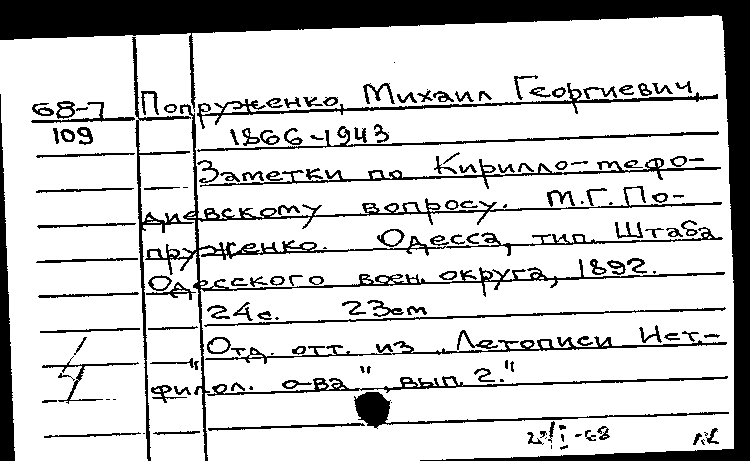 68-7 Попруженко, Михаил Георгиевич,
109 1866-1943
Заметки по Кирилло-мефо-
диевскому вопросу. М.Г. По-
пруженко. Одесса, тип. Штаба
Одесского воен. округа, 1892.
24с. 23см
"Отд. отт. из „Летописи Ист.-
филол. о-ва", вып. 2."
4